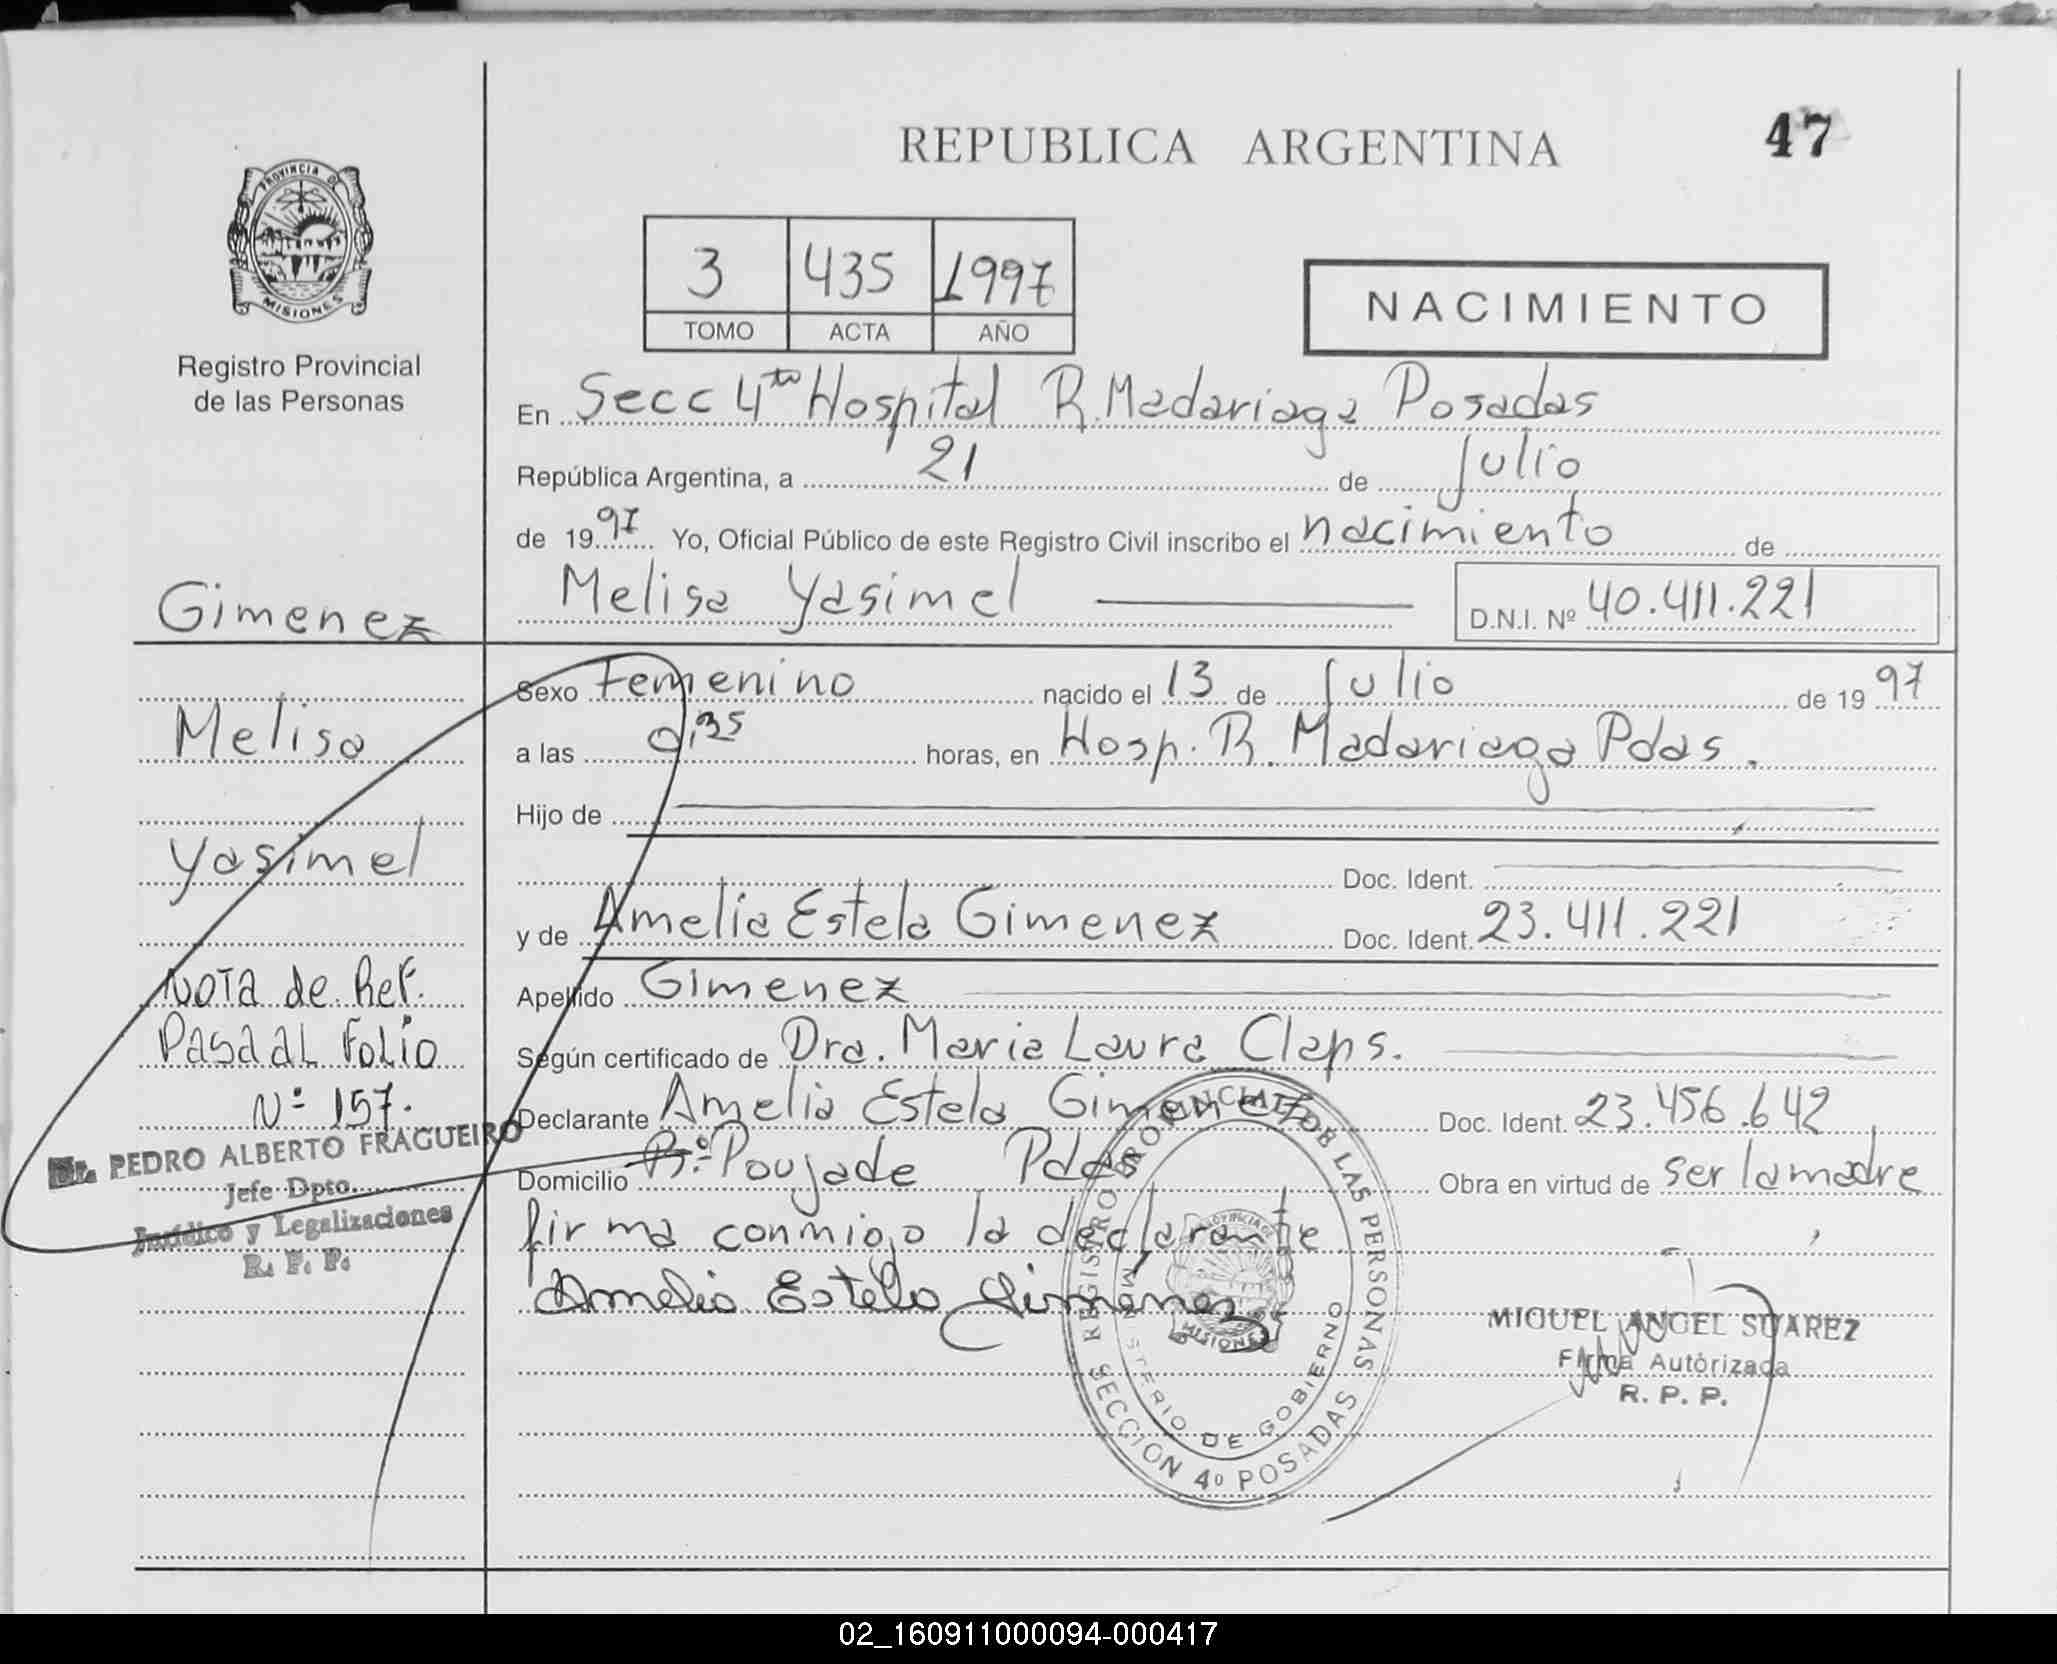 47
REPUBLICA ARGENTINA
PROVINCIA DE
MISIONES
Registro Provincial
de las Personas
3 435 1997
TOMO ACTA AÑO
NACIMIENTO
En Secc 4to Hospital R. Madariaga Posadas
República Argentina, a 21 de Julio
de 1997 Yo, Oficial Público de este Registro Civil inscribo el nacimiento de
Melisa Yasimel D.N.I. Nº 40.411.221
Gimenez
Melisa
Yasimel
Nota de Ref.
Pasa al Folio
Nº 157.
Dr. PEDRO ALBERTO FRAGUEIRO
Jefe Dpto.
Jurídico y Legalizaciones
R. P. P.
Sexo Femenino nacido el 13 de Julio de 1997
a las 0,35 horas, en Hosp. R. Madariaga Pdas.
Hijo de
Doc. Ident.
y de Amelia Estela Gimenez Doc. Ident. 23.411.221
Apellido Gimenez
Según certificado de Dra. Maria Laura Claps.
Declarante Amelia Estela Gimenez Doc. Ident. 23.456.642
Domicilio Bº Poujade Pdas Obra en virtud de ser la madre
firma conmigo la declarante
Amelia Estela Gimenez
REGISTRO PROVINCIAL DE LAS PERSONAS
SECCION 4º POSADAS
MINISTERIO DE GOBIERNO
PROVINCIA DE
MISIONES
MIGUEL ANGEL SUAREZ
Firma Autórizada
R. P. P.
02_160911000094-000417